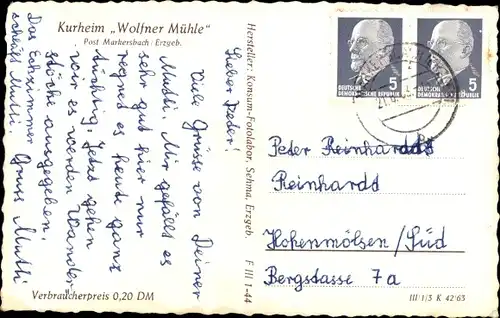 Kurheim „Wolfner Mühle"
Post Markersbach/Erzgeb.
Lieber Peter!
Viele Grüsse von Deiner
Mutti. Mir gefällt es
sehr gut hier nur
regnet es heute ganz
tüchtig. Jetzt gehen
wir es werden Wander
stöcke ausgegeben.
Das Echzimmer
schickt Mutti
Gruss Mutti
Verbraucherpreis 0,20 DM
Hersteller: Konsum-Fotolabor, Sehma, Erzgeb.
F III 1-44
DEUTSCHE
DEMOKRATISCHE REPUBLIK
5
DEUTSCHE
DEMOKRATISCHE REPUBLIK
5
Peter Reinhardt
Reinhardt
Hohenmölsen/Süd
Bergstasse 7a
III 1/3 K 42/63